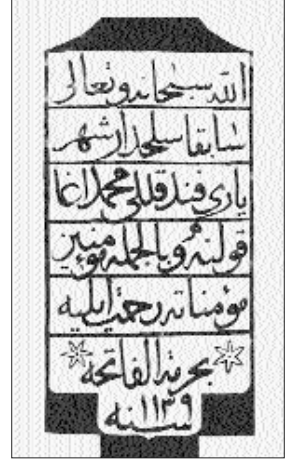 الله سبحانه و تعالى
سابقا سلحدار شهر
ياري فندقللي محمد اغا
قولنه و بالجمله مؤمنين
مؤمناته رحمت ايليه
بحرمة الفاتحه
سنه ١١٣٩